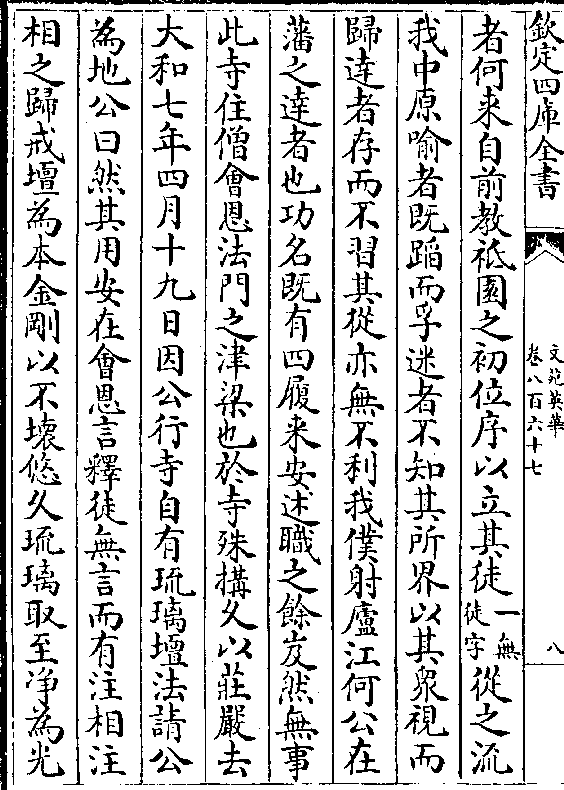 欽定四庫全書
文苑英華
卷八百六十七
八
者何来自前教祇園之初位序以立其徒一無徒字從之流
我中原喻者既蹈而孚迷者不知其所界以其衆視而
歸達者存而不習其從亦無不利我僕射廬江何公在
藩之達者也功名既有四履来安述職之餘岌然無事
此寺住僧會恩法門之津梁也於寺殊搆久以莊嚴去
大和七年四月十九日因公行寺自有琉璃壇法請公
為地公曰然其用安在會恩言釋徒無言而有注相注
相之歸戒壇為本金剛以不壞悠久琉璃取至净為光